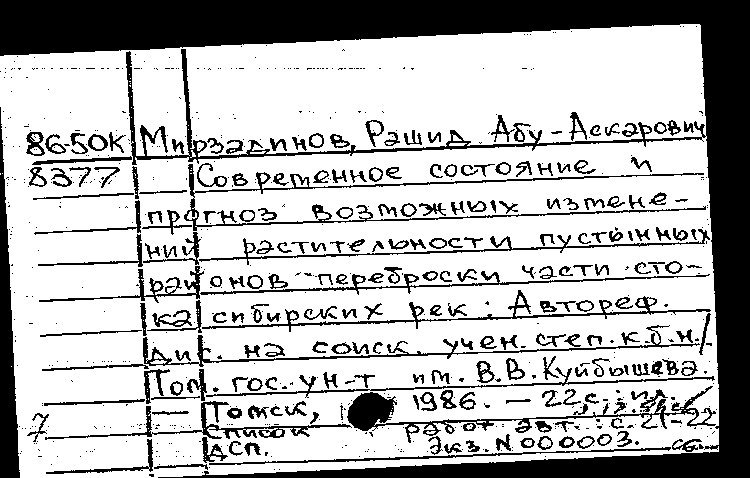 86-50K Мирзадинов, Рашид Абу-Аскарович
8377 Современное состояние и
прогноз возможных измене-
ний растительности пустынных
районов переброски части сто-
ка сибирских рек: Автореф.
дис. на соиск. учен. степ. к.б.н./
Том. гос. ун-т им. В.В. Куйбышева.
— Томск, 1986. — 22 с.: ил.
7 Список работ авт.: с. 21-22
ДСП. Экз. N 000003.